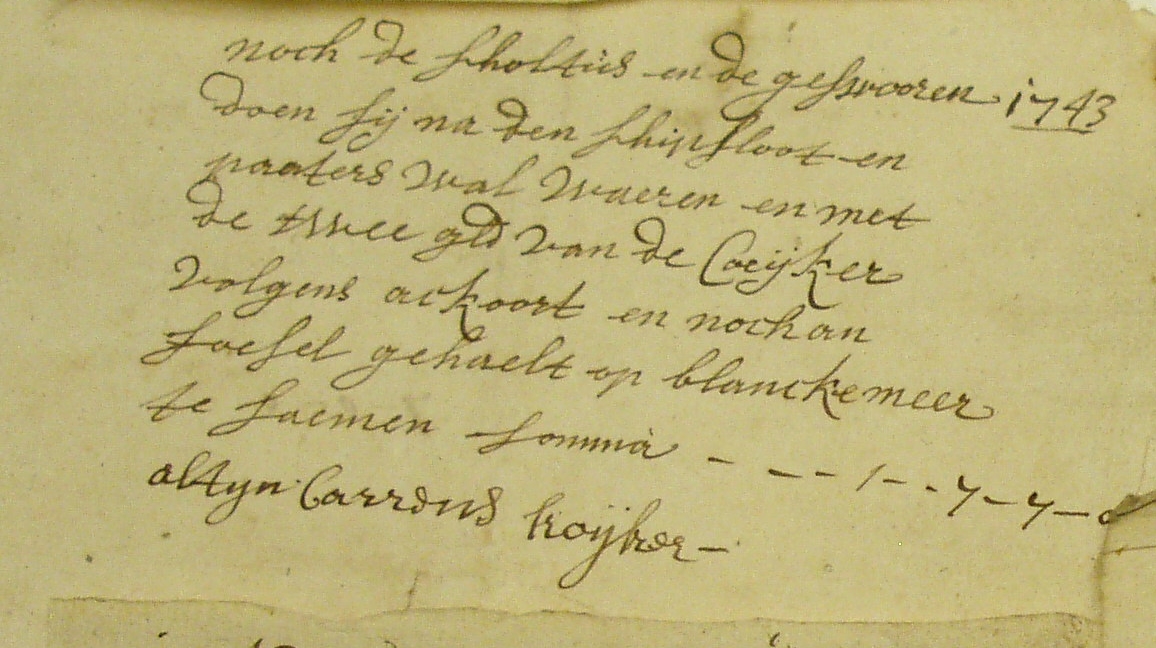 noch de scholtüs en de geswooren 1743
doen sij na den schipsloot en
paaters wal waeren en met
de twee gld van de Coeijker
volgens ackoort en noch an
foesel gehaelt op blanckemeer
te saemen somma - - - 1 - - 7 - 7 - 0
altyn Carrsens koijker -